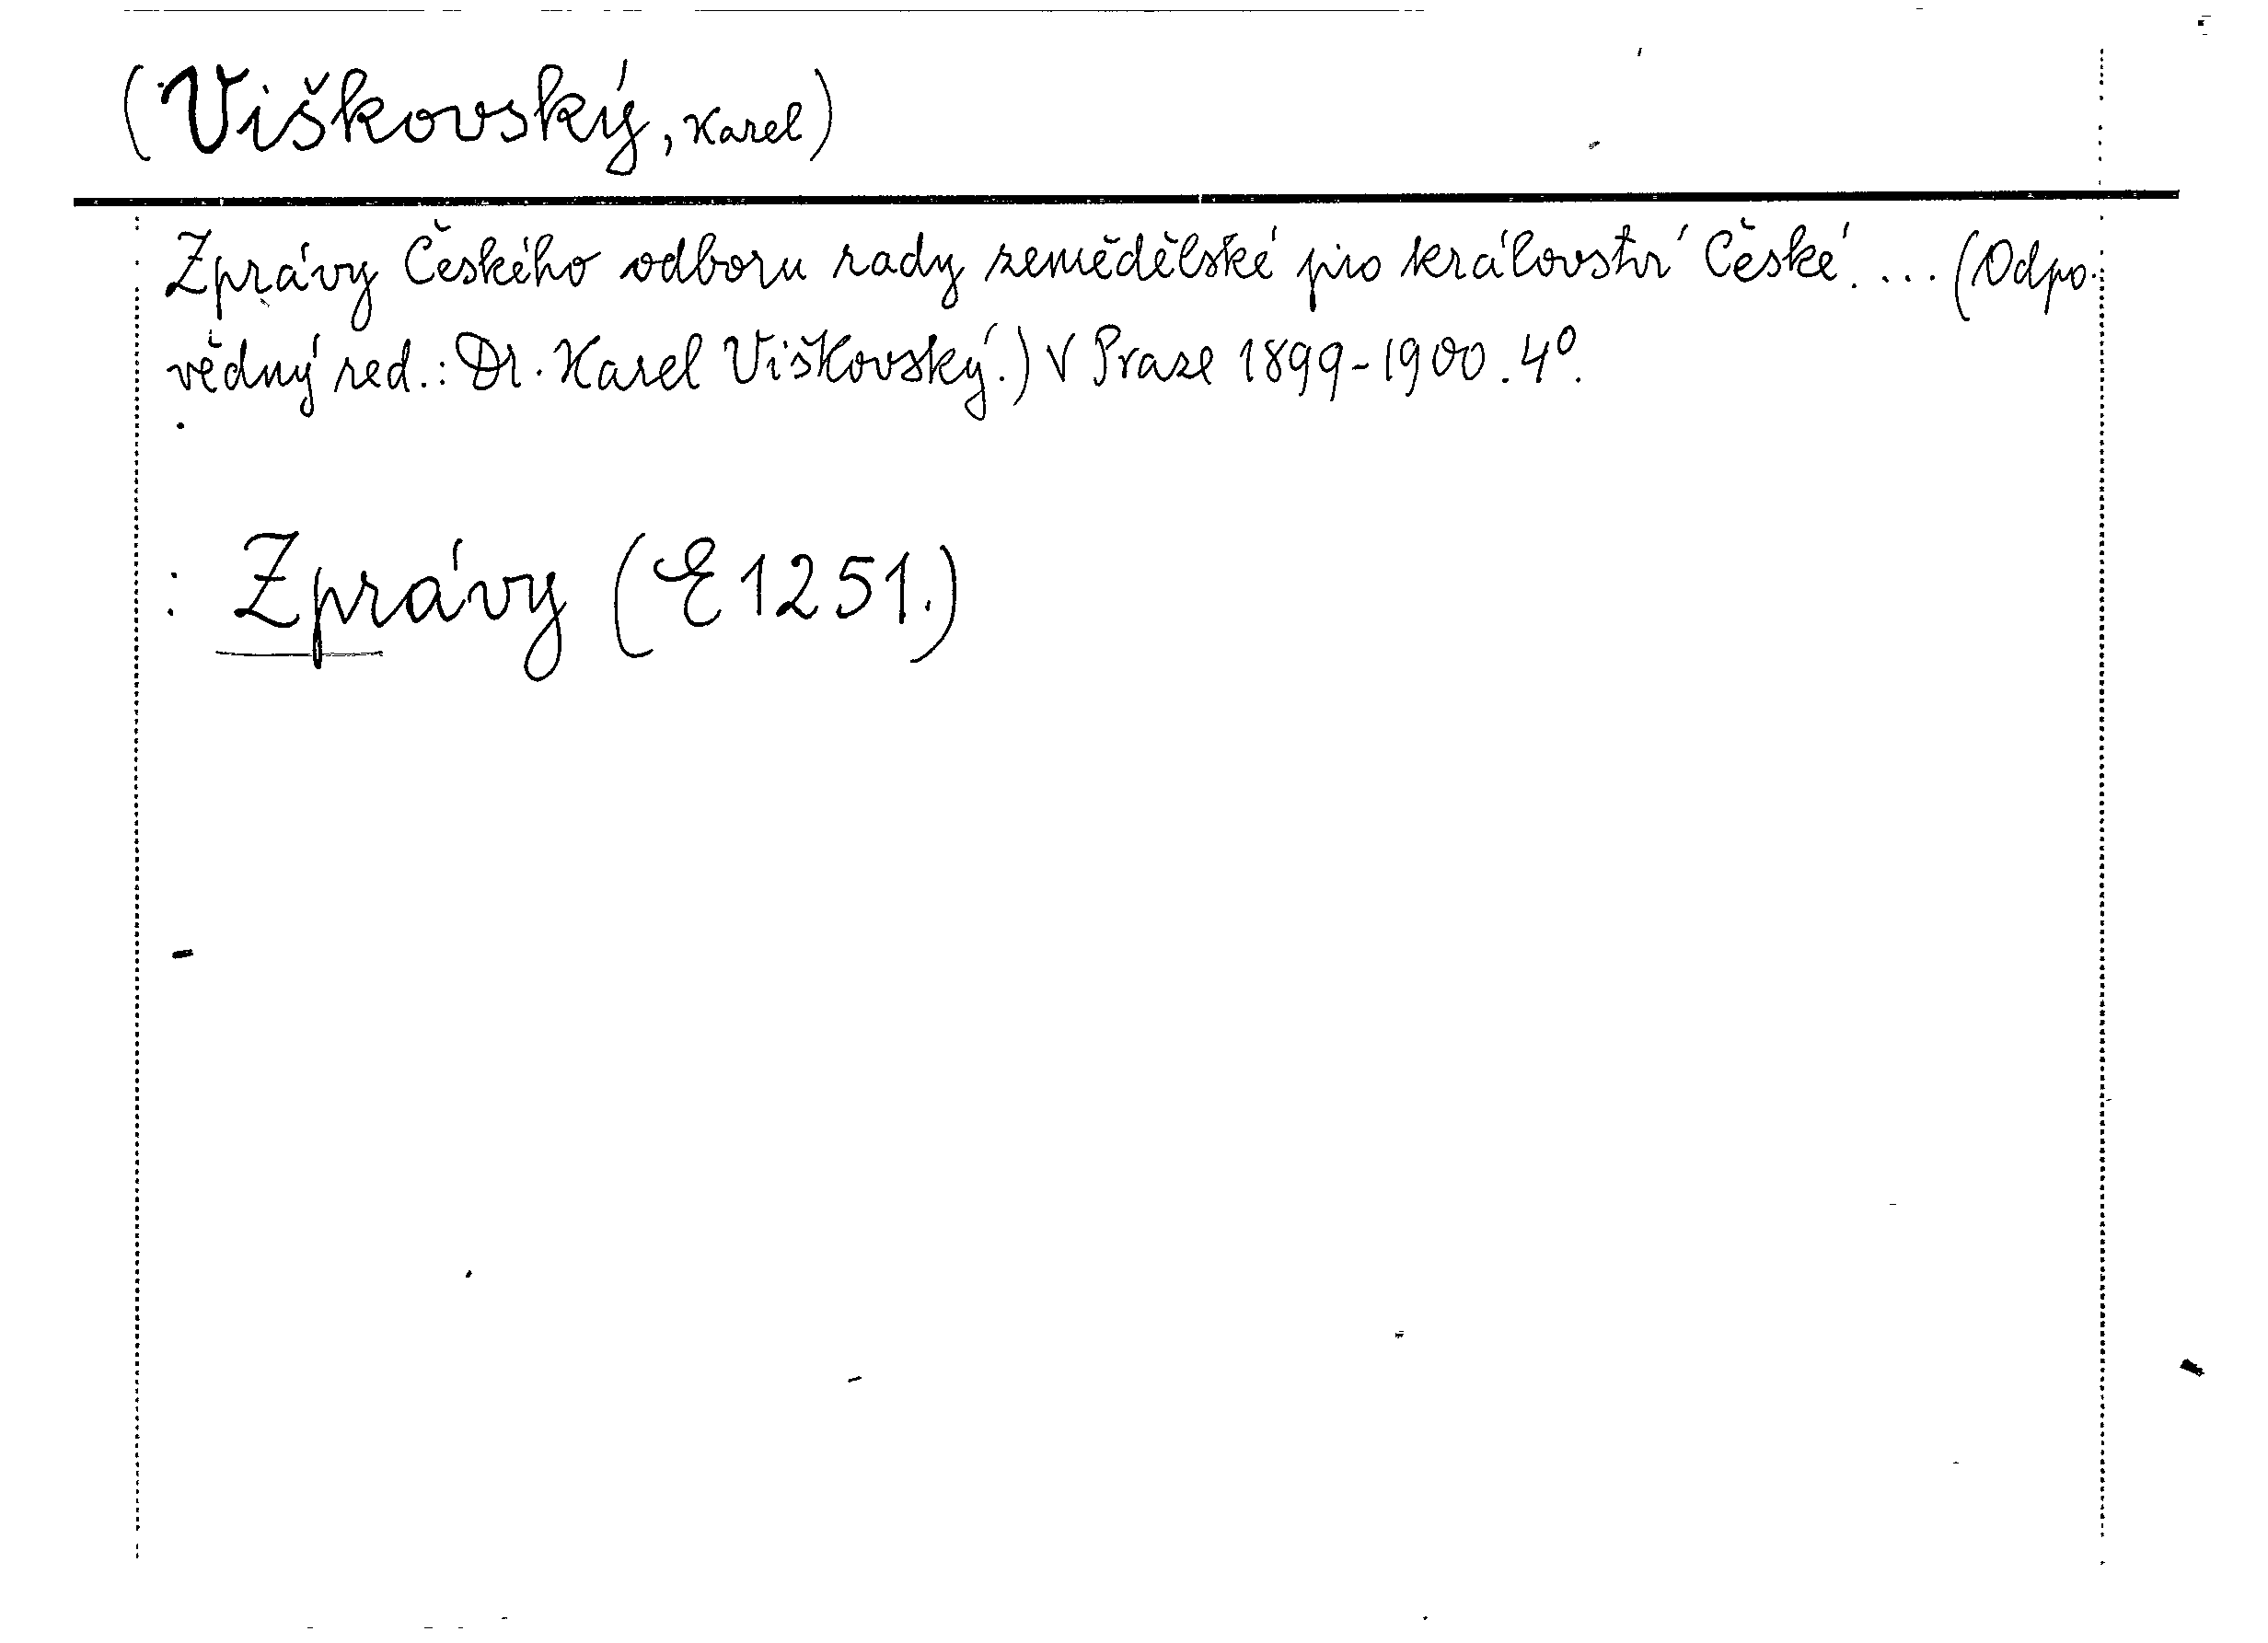 (Viškovský, Karel)
Zprávy Českého odboru rady zemědělské pro království České. ... (Odpo-
vědný red.: Dr. Karel Viškovský.) V Praze 1899-1900. 4°.
: Zprávy (E 1251.)